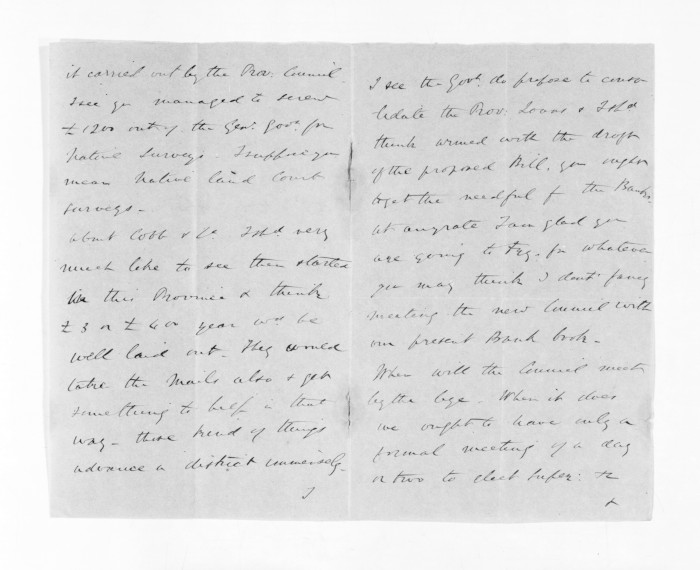 it carried out by the Prov: Council.
I see you managed to screw
£1200 out of the Genl. Govt. for
Native Surveys. I suppose you
mean Native land Court
surveys -
About Cobb & Co. I shd very
much like to see them started
in this Province & think
£3 or £400 a year wd be
well laid out. They would
take the Mails also & get
something to help in that
way - those kind of things
advance a district immensely.
I
I see the Govt. do propose to conso
lidate the Prov: Loans & I shd
think armed with the draft
of the proposed Bill, you ought
to get the needful f the Bank,
at anyrate I am glad you
are going to try, for whatever
you may think I don't fancy
meeting the new Council with
our present Bank book -
When will the Council meet
by the bye. When it does
we ought to have only a
formal meeting of a day
or two to elect Super: &c
&